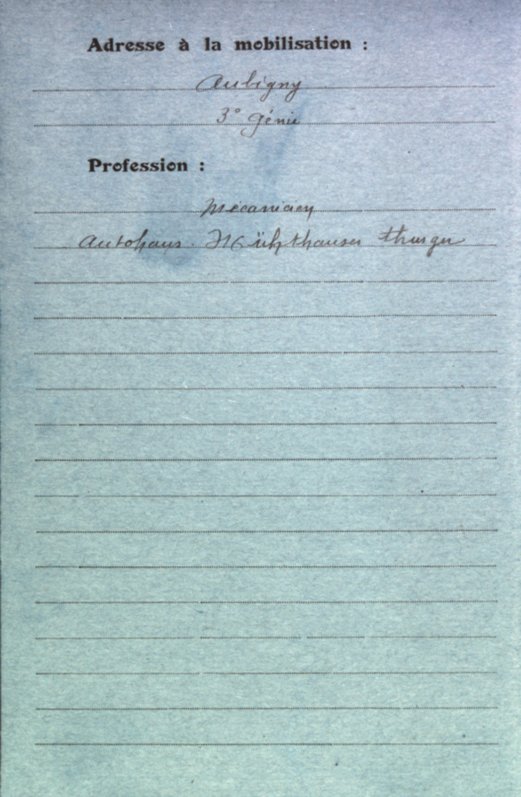 Adresse à la mobilisation :
Aubigny
3° génie
Profession :
Mécanicien
Autohaus. Mühlhausen